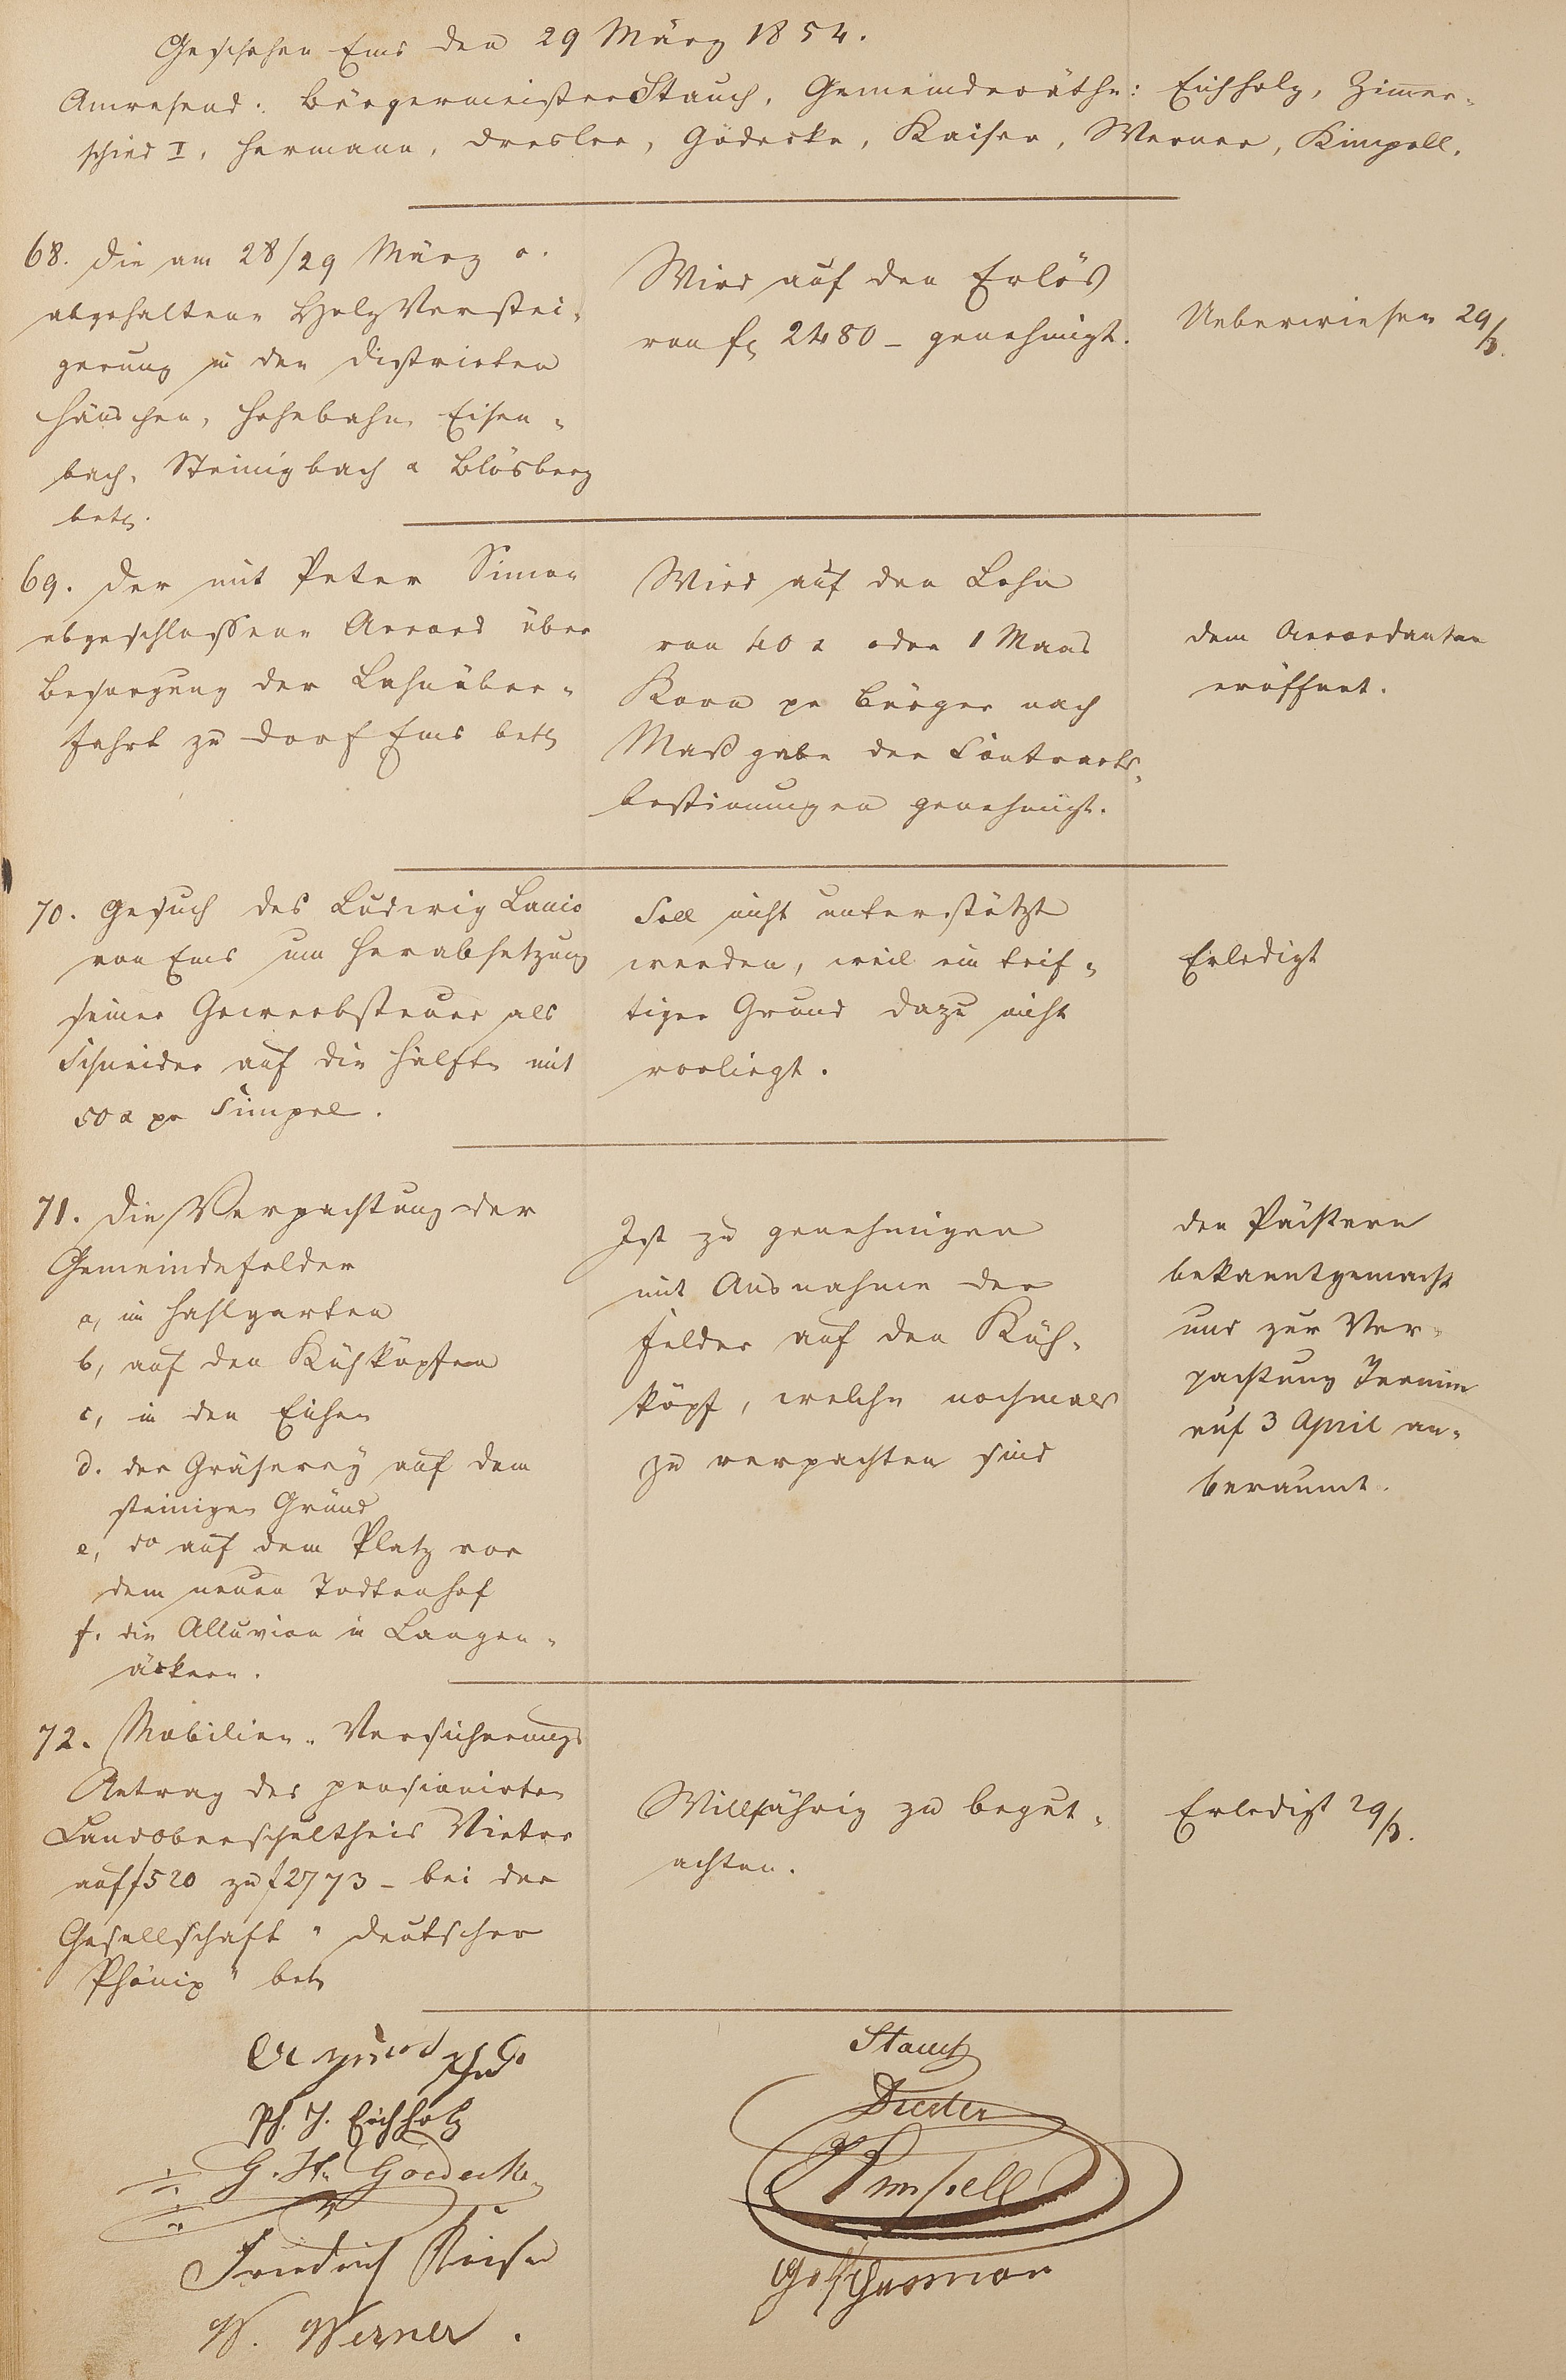 Geschehen Ems den 29 März 1854.
Anwesend: Bürgermeister Stauch, Gemeinderäthe: Eichholz, Zimmer-
schied I, Hermann, Dresler, Gödecke, Kaiser, Werner, Kimpell.
68. Die am 28/29 März c.
abgehaltene Holz Verstei-
gerung in den Districten
Häuschen, Hohebahn, Eisen-
bach, Steinigbach & Blösberg
betr.
Wird auf den Erlös
von f 2480 – genehmigt.
Ueberwiesen 29/3.
69. Der mit Peter Simon
abgeschlossene Accord über
Besorgung der Lahnüber-
fahrt zu Dorf Ems betr
Wird auf den Lohn
von 40 x oder 1 Maas
Korn pr Bürger nach
Maßgabe der Contracts-
bestimmungen genehmigt.
Dem Accordanten
eröffnet.
70. Gesuch des Ludwig Lanio
von Ems um Herabsetzung
seiner Gewerbsteuer als
Schneider auf die Hälfte mit
50 x pr Simpel.
Soll nicht unterstützt
werden, weil ein trif-
tiger Grund dazu nicht
vorliegt.
Erledigt
71. Die Verpachtung der
Gemeindefelder
a, im Hahlgarten
b, auf den Kühköpfen
c, in den Eichen
d. der Gräserey auf dem
steinigen Gründ
e, do auf dem Platz vor
dem neuen Todtenhof
f. die Alluvion in Langen-
äckern.
Ist zu genehmigen
mit Ausnahme der
Felder auf den Küh-
köpf, welche nochmals
zu verpachten sind
Den Pächtern
bekanntgemacht
und zur Ver-
pachtung Termin
auf 3 April an-
beraumt.
72. Mobilien-Versicherungs
Antrag des pensionirten
Landoberschultheis Vietor
auf f 520 zu f 2773 – bei der
Gesellschaft "Deutscher
Phönix" betr
Willfährig zu begut-
achten.
Erledigt 29/3.
Stauch
Ph. J. Eichholz
Dresler
G. H. Goedecke
Kimpell
Friedrich Kaiser
W. Werner.